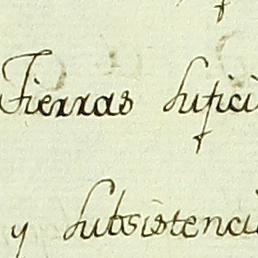 Tierras sufici
y subsistenci